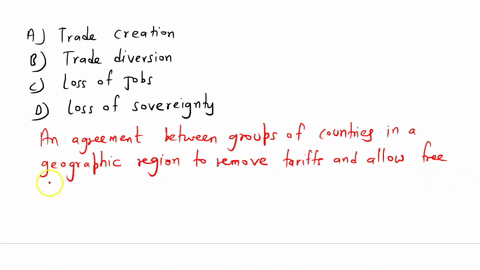 A) Trade creation
B) Trade diversion
C) Loss of Jobs
D) Loss of sovereignty
An agreement between groups of counties in a
geographic region to remove tariffs and allow free